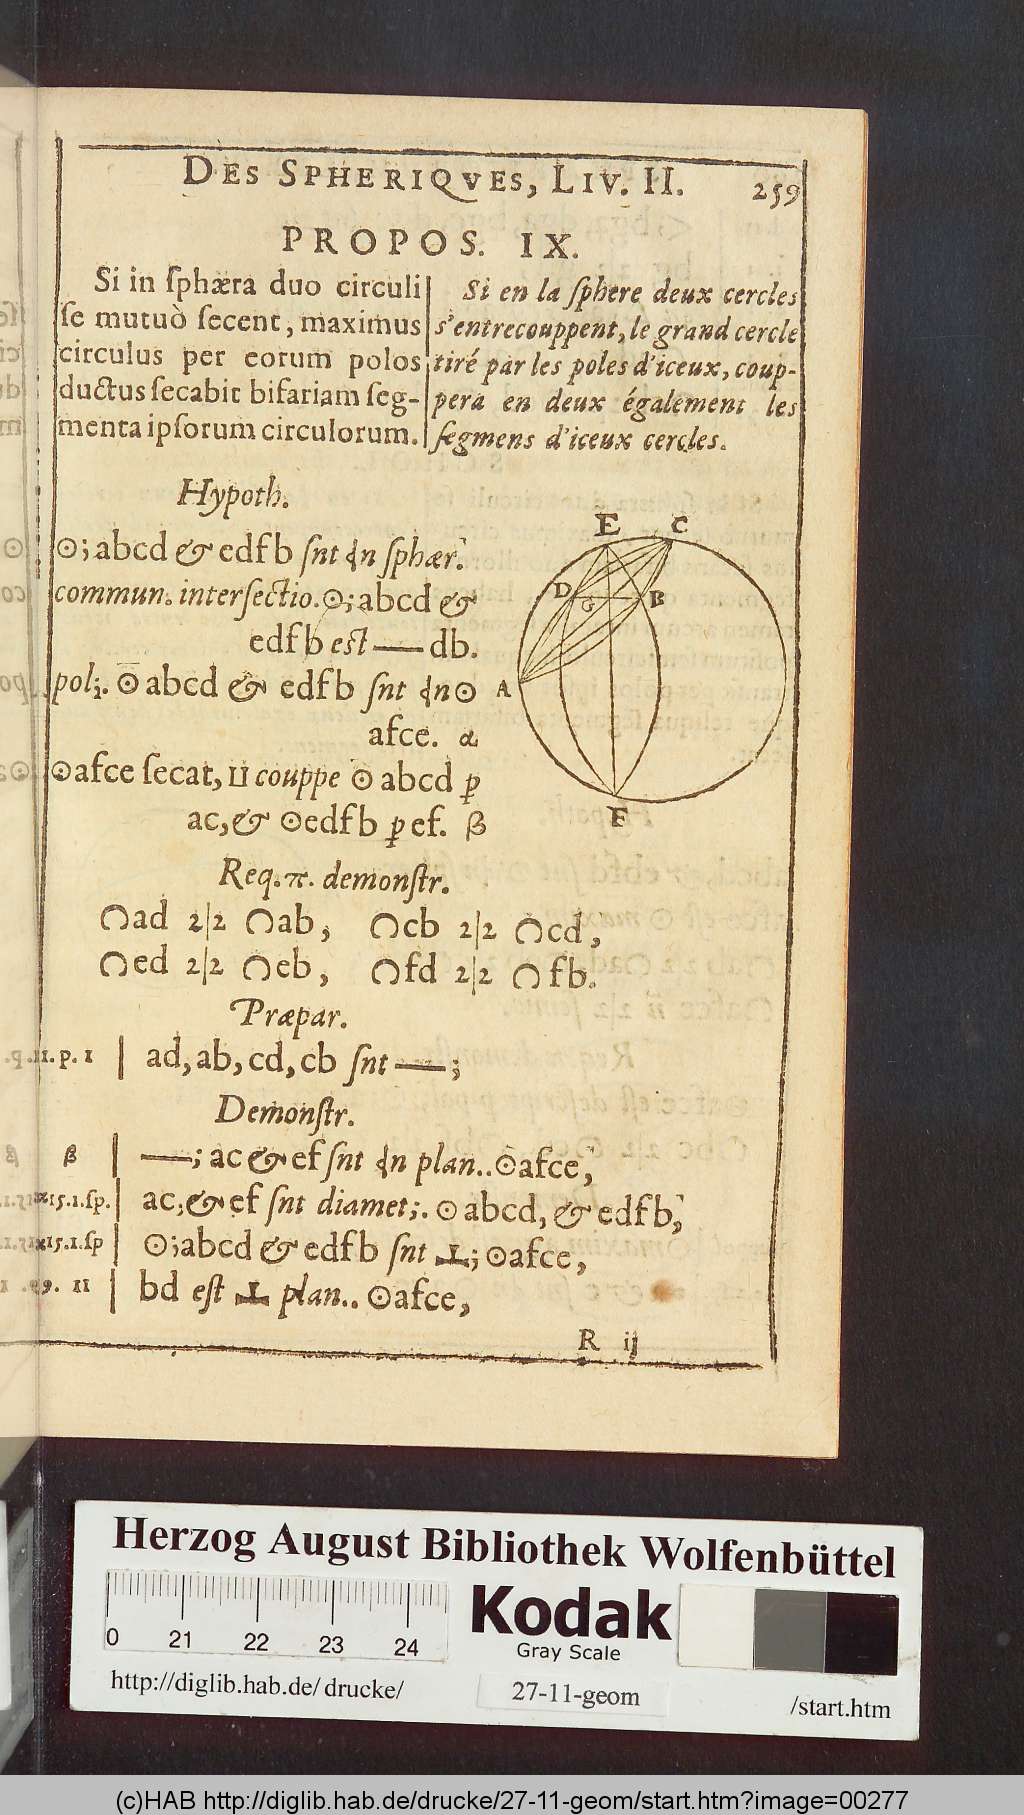 DES SPHERIQVES, LIV. II. 259
PROPOS. IX.
Si in ſphæra duo circuli
ſe mutuò ſecent, maximus
circulus per eorum polos
ductus ſecabit bifariam ſeg-
menta ipſorum circulorum.
Si en la ſphere deux cercles
s'entrecouppent, le grand cercle
tiré par les poles d'iceux, coup-
pera en deux également les
ſegmens d'iceux cercles.
Hypoth.
⊙; abcd & edfb ſnt ſphær.
commun. interſectio. ⊙; abcd &
edfb eſt — db.
pol;. ⊙ abcd & edfb ſnt ⊙
afce. α
⊙ afce ſecat, couppe ⊙ abcd p
ac, & ⊙ edfb p ef. β
E C
D G B
A
F
Req. π. demonſtr.
⌒ad 2|2 ⌒ab, ⌒cb 2|2 ⌒cd,
⌒ed 2|2 ⌒eb, ⌒fd 2|2 ⌒fb.
Præpar.
11. p. 1 | ad, ab, cd, cb ſnt —;
Demonſtr.
β | —; ac & ef ſnt plan.. ⊙afce,
15.1.ſp. | ac, & ef ſnt diamet;. ⊙ abcd, & edfb,
15.1.ſp | ⊙; abcd & edfb ſnt ⊥; ⊙afce,
11 | bd eſt ⊥ plan.. ⊙afce,
R ij
Herzog August Bibliothek Wolfenbüttel
0 21 22 23 24
Kodak
Gray Scale
http://diglib.hab.de/drucke/ 27-11-geom /start.htm
(c)HAB http://diglib.hab.de/drucke/27-11-geom/start.htm?image=00277